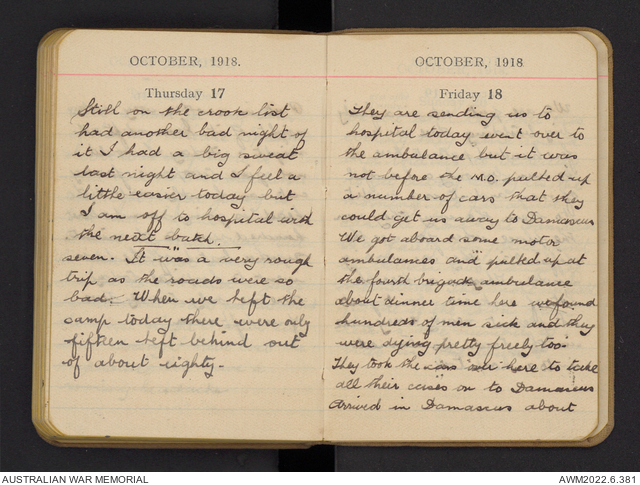 OCTOBER, 1918.
Thursday 17
Still on the crook list
had another bad night of
it I had a big sweat
last night and I feel a
little easier today but
I am off to hospital with
the next batch.
seven. It was a very rough
trip as the roads were so
bad. When we left the
camp today there were only
fifteen left behind out
of about eighty.
OCTOBER, 1918
Friday 18
They are sending us to
hospital today went over to
the ambulance but it was
not before the M.O. pulled up
a number of cars that they
could get us away to Damascus
We got aboard some motor
ambulances and pulled up at
the fourth brigade ambulance
about dinner time here we found
hundreds of men sick and they
were dying pretty freely too
They took the cars over here to take
all their cases on to Damascus
Arrived in Damascus about
AUSTRALIAN WAR MEMORIAL
AWM2022.6.381